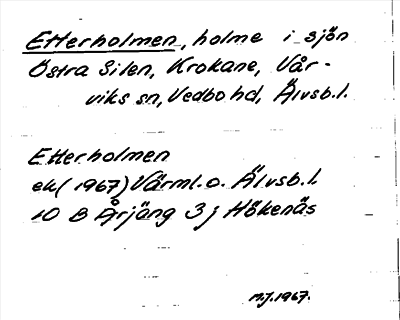 Etterholmen, holme i sjön
Östra Silen, Krokane, Vår-
viks sn, Vedbo hd, Älvsb.l.
Etterholmen
ek (1967) Värml. o. Älvsb.l.
10 B Årjäng 3 j Hökenäs
M.J. 1967.